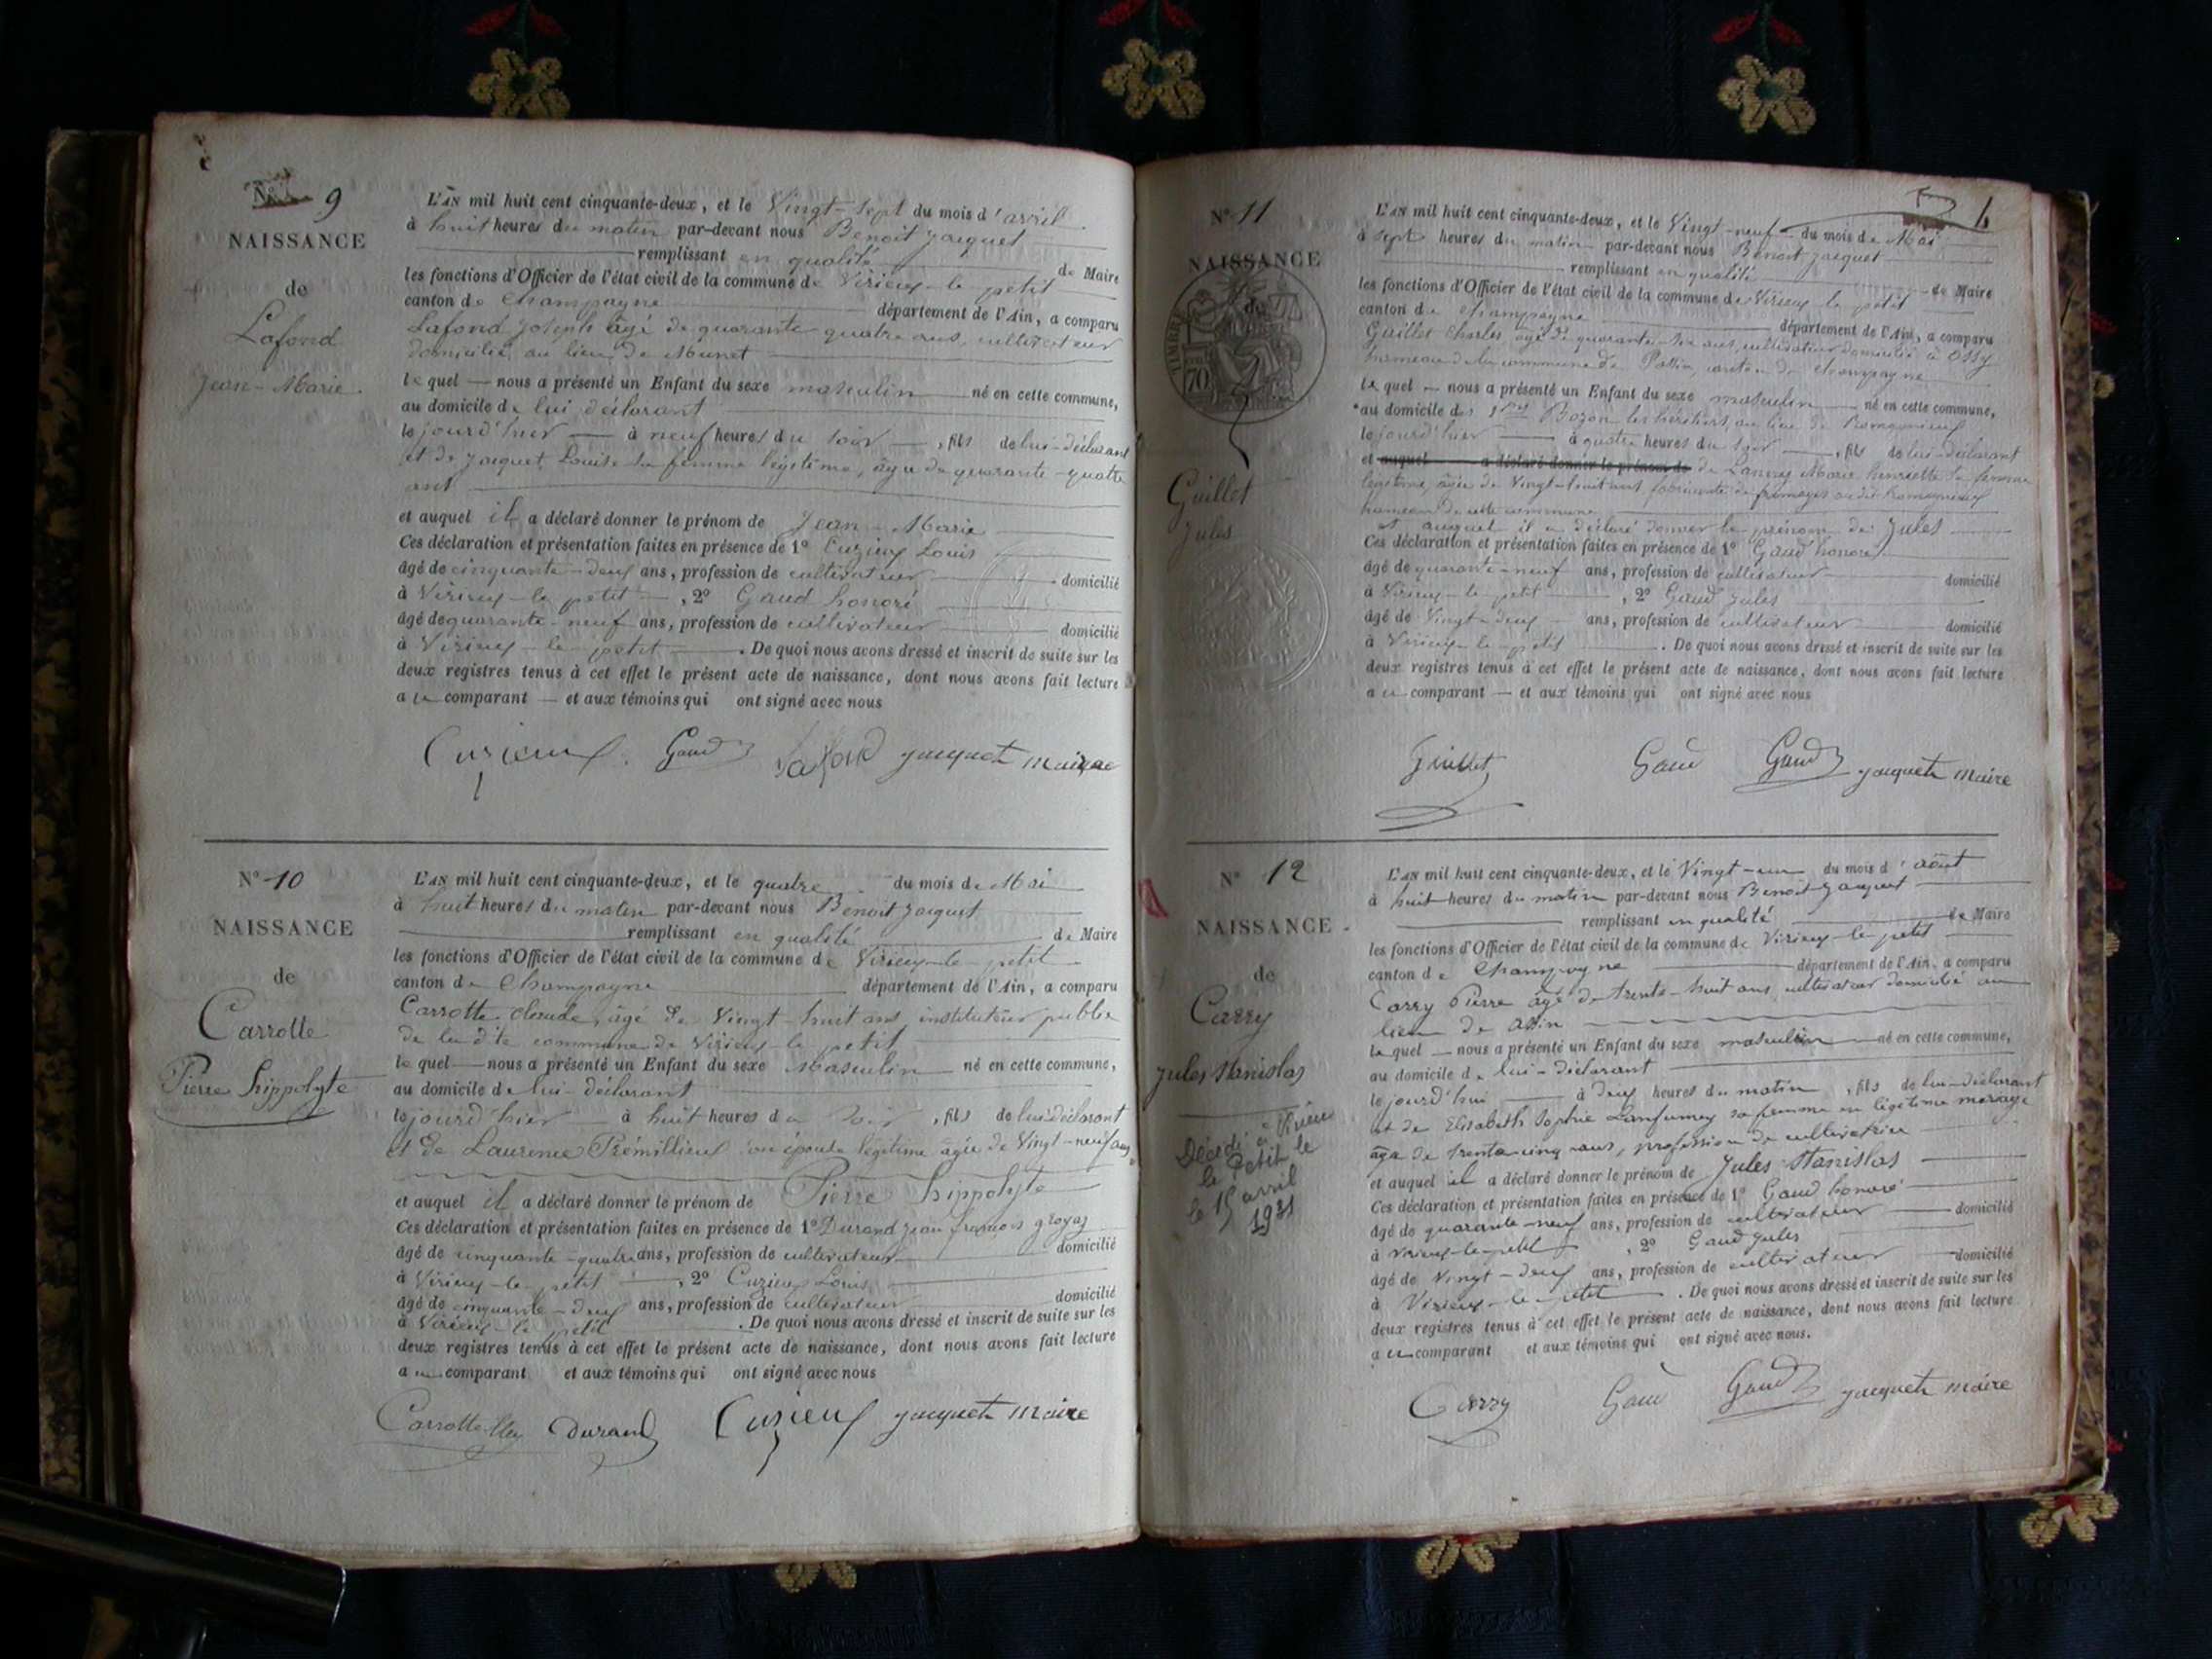 N° 9
NAISSANCE
de
Lafond
Jean-Marie
L'AN mil huit cent cinquante-deux, et le Vingt-Sept du mois d'avril
à huit heures du matin par-devant nous Benoit Jacquet
remplissant en qualité de Maire
les fonctions d'Officier de l'état civil de la commune de Virieux-le-petit
canton de Champagne département de l'Ain, a comparu
Lafond Joseph âgé de quarante quatre ans, cultivateur
domicilié au lieu de Munet
lequel nous a présenté un Enfant du sexe masculin né en cette commune,
au domicile de lui déclarant
le jourd'hier à neuf heures du soir, fils de lui-déclarant
et de Jacquet Louise sa femme légitime, âgée de quarante-quatre
ans
et auquel il a déclaré donner le prénom de Jean-Marie
Ces déclaration et présentation faites en présence de 1° Cuzieux Louis
âgé de cinquante-deux ans, profession de cultivateur domicilié
à Virieux-le petit, 2° Gaud honoré
âgé de quarante-neuf ans, profession de cultivateur domicilié
à Virieux-le-petit. De quoi nous avons dressé et inscrit de suite sur les
deux registres tenus à cet effet le présent acte de naissance, dont nous avons fait lecture
au comparant et aux témoins qui ont signé avec nous
Cuzieux Gaud Lafond jacquet maire
N° 10
NAISSANCE
de
Carrotte
Pierre hippolyte
L'AN mil huit cent cinquante-deux, et le quatre du mois de Mai
à huit heures du matin par-devant nous Benoit Jacquet
remplissant en qualité de Maire
les fonctions d'Officier de l'état civil de la commune de Virieux-le-petit
canton de Champagne département de l'Ain, a comparu
Carrotte Claude, âgé de Vingt-huit ans instituteur public
de la dite commune de Virieux-le petit
lequel nous a présenté un Enfant du sexe Masculin né en cette commune,
au domicile de lui-déclarant
le jourd'hier à huit heures du soir, fils de lui déclarant
et de Laurence Prémillieux son épouse légitime âgée de Vingt-neuf ans
et auquel il a déclaré donner le prénom de Pierre hippolyte
Ces déclaration et présentation faites en présence de 1° Durand Jean françois
âgé de cinquante-quatre ans, profession de cultivateur domicilié
à Virieux-le-petit, 2° Cuzieux Louis
âgé de cinquante-deux ans, profession de cultivateur domicilié
à Virieux-le petit. De quoi nous avons dressé et inscrit de suite sur les
deux registres tenus à cet effet le présent acte de naissance, dont nous avons fait lecture
au comparant et aux témoins qui ont signé avec nous
Carrotte Durand Cuzieux jacquet maire
N° 11
NAISSANCE
de
TIMBRE
70
Guillet
Jules
L'AN mil huit cent cinquante-deux, et le Vingt-neuf du mois de Mai
à sept heures du matin par-devant nous Benoit Jacquet
remplissant en qualité de Maire
les fonctions d'Officier de l'état civil de la commune de Virieux le petit
canton de Champagne département de l'Ain, a comparu
Guillet Charles, âgé de quarante-six ans, cultivateur domicilié à Ossy
hameau de la commune de canton de Champagne
lequel nous a présenté un Enfant du sexe masculin né en cette commune,
au domicile des Bozon les héritiers, au lieu de Romagnieux
le jourd'hier à quatre heures du soir, fils de lui-déclarant
et auquel a déclaré donner le prénom de de Lanvay Marie henriette sa femme
légitime, âgée de Vingt-huit ans, fabricante de fromages au dit Romagnieux
hameau de cette commune
et auquel il a déclaré donner le prénom de Jules
Ces déclaration et présentation faites en présence de 1° Gaud honoré
âgé de quarante-neuf ans, profession de cultivateur domicilié
à Virieux-le petit, 2° Gaud Jules
âgé de Vingt-deux ans, profession de cultivateur domicilié
à Virieux-le petit. De quoi nous avons dressé et inscrit de suite sur les
deux registres tenus à cet effet le présent acte de naissance, dont nous avons fait lecture
au comparant et aux témoins qui ont signé avec nous
Guillet Gaud Gaud jacquet maire
N° 12
NAISSANCE
de
Carry
Jules Stanislas
Décédé à Virieu
le Petit le
le 15 avril
1931
L'AN mil huit cent cinquante-deux, et le Vingt-un du mois d'août
à huit heures du matin par-devant nous Benoit Jacquet
remplissant en qualité de Maire
les fonctions d'Officier de l'état civil de la commune de Virieux-le-petit
canton de Champagne département de l'Ain, a comparu
Carry Pierre âgé de trente-huit ans, cultivateur domicilié au
lieu de Assin
lequel nous a présenté un Enfant du sexe masculin né en cette commune,
au domicile de lui-déclarant
le jourd'hui à deux heures du matin, fils de lui-déclarant
et de Elisabeth Sophie Lanfumey sa femme en légitime mariage
âgée de trente-cinq ans, profession de cultivatrice
et auquel il a déclaré donner le prénom de Jules Stanislas
Ces déclaration et présentation faites en présence de 1° Gaud honoré
âgé de quarante-neuf ans, profession de cultivateur domicilié
à Virieux-le-petit, 2° Gaud Jules
âgé de Vingt-deux ans, profession de cultivateur domicilié
à Virieux-le-petit. De quoi nous avons dressé et inscrit de suite sur les
deux registres tenus à cet effet le présent acte de naissance, dont nous avons fait lecture
au comparant et aux témoins qui ont signé avec nous.
Carry Gaud Gaud jacquet maire